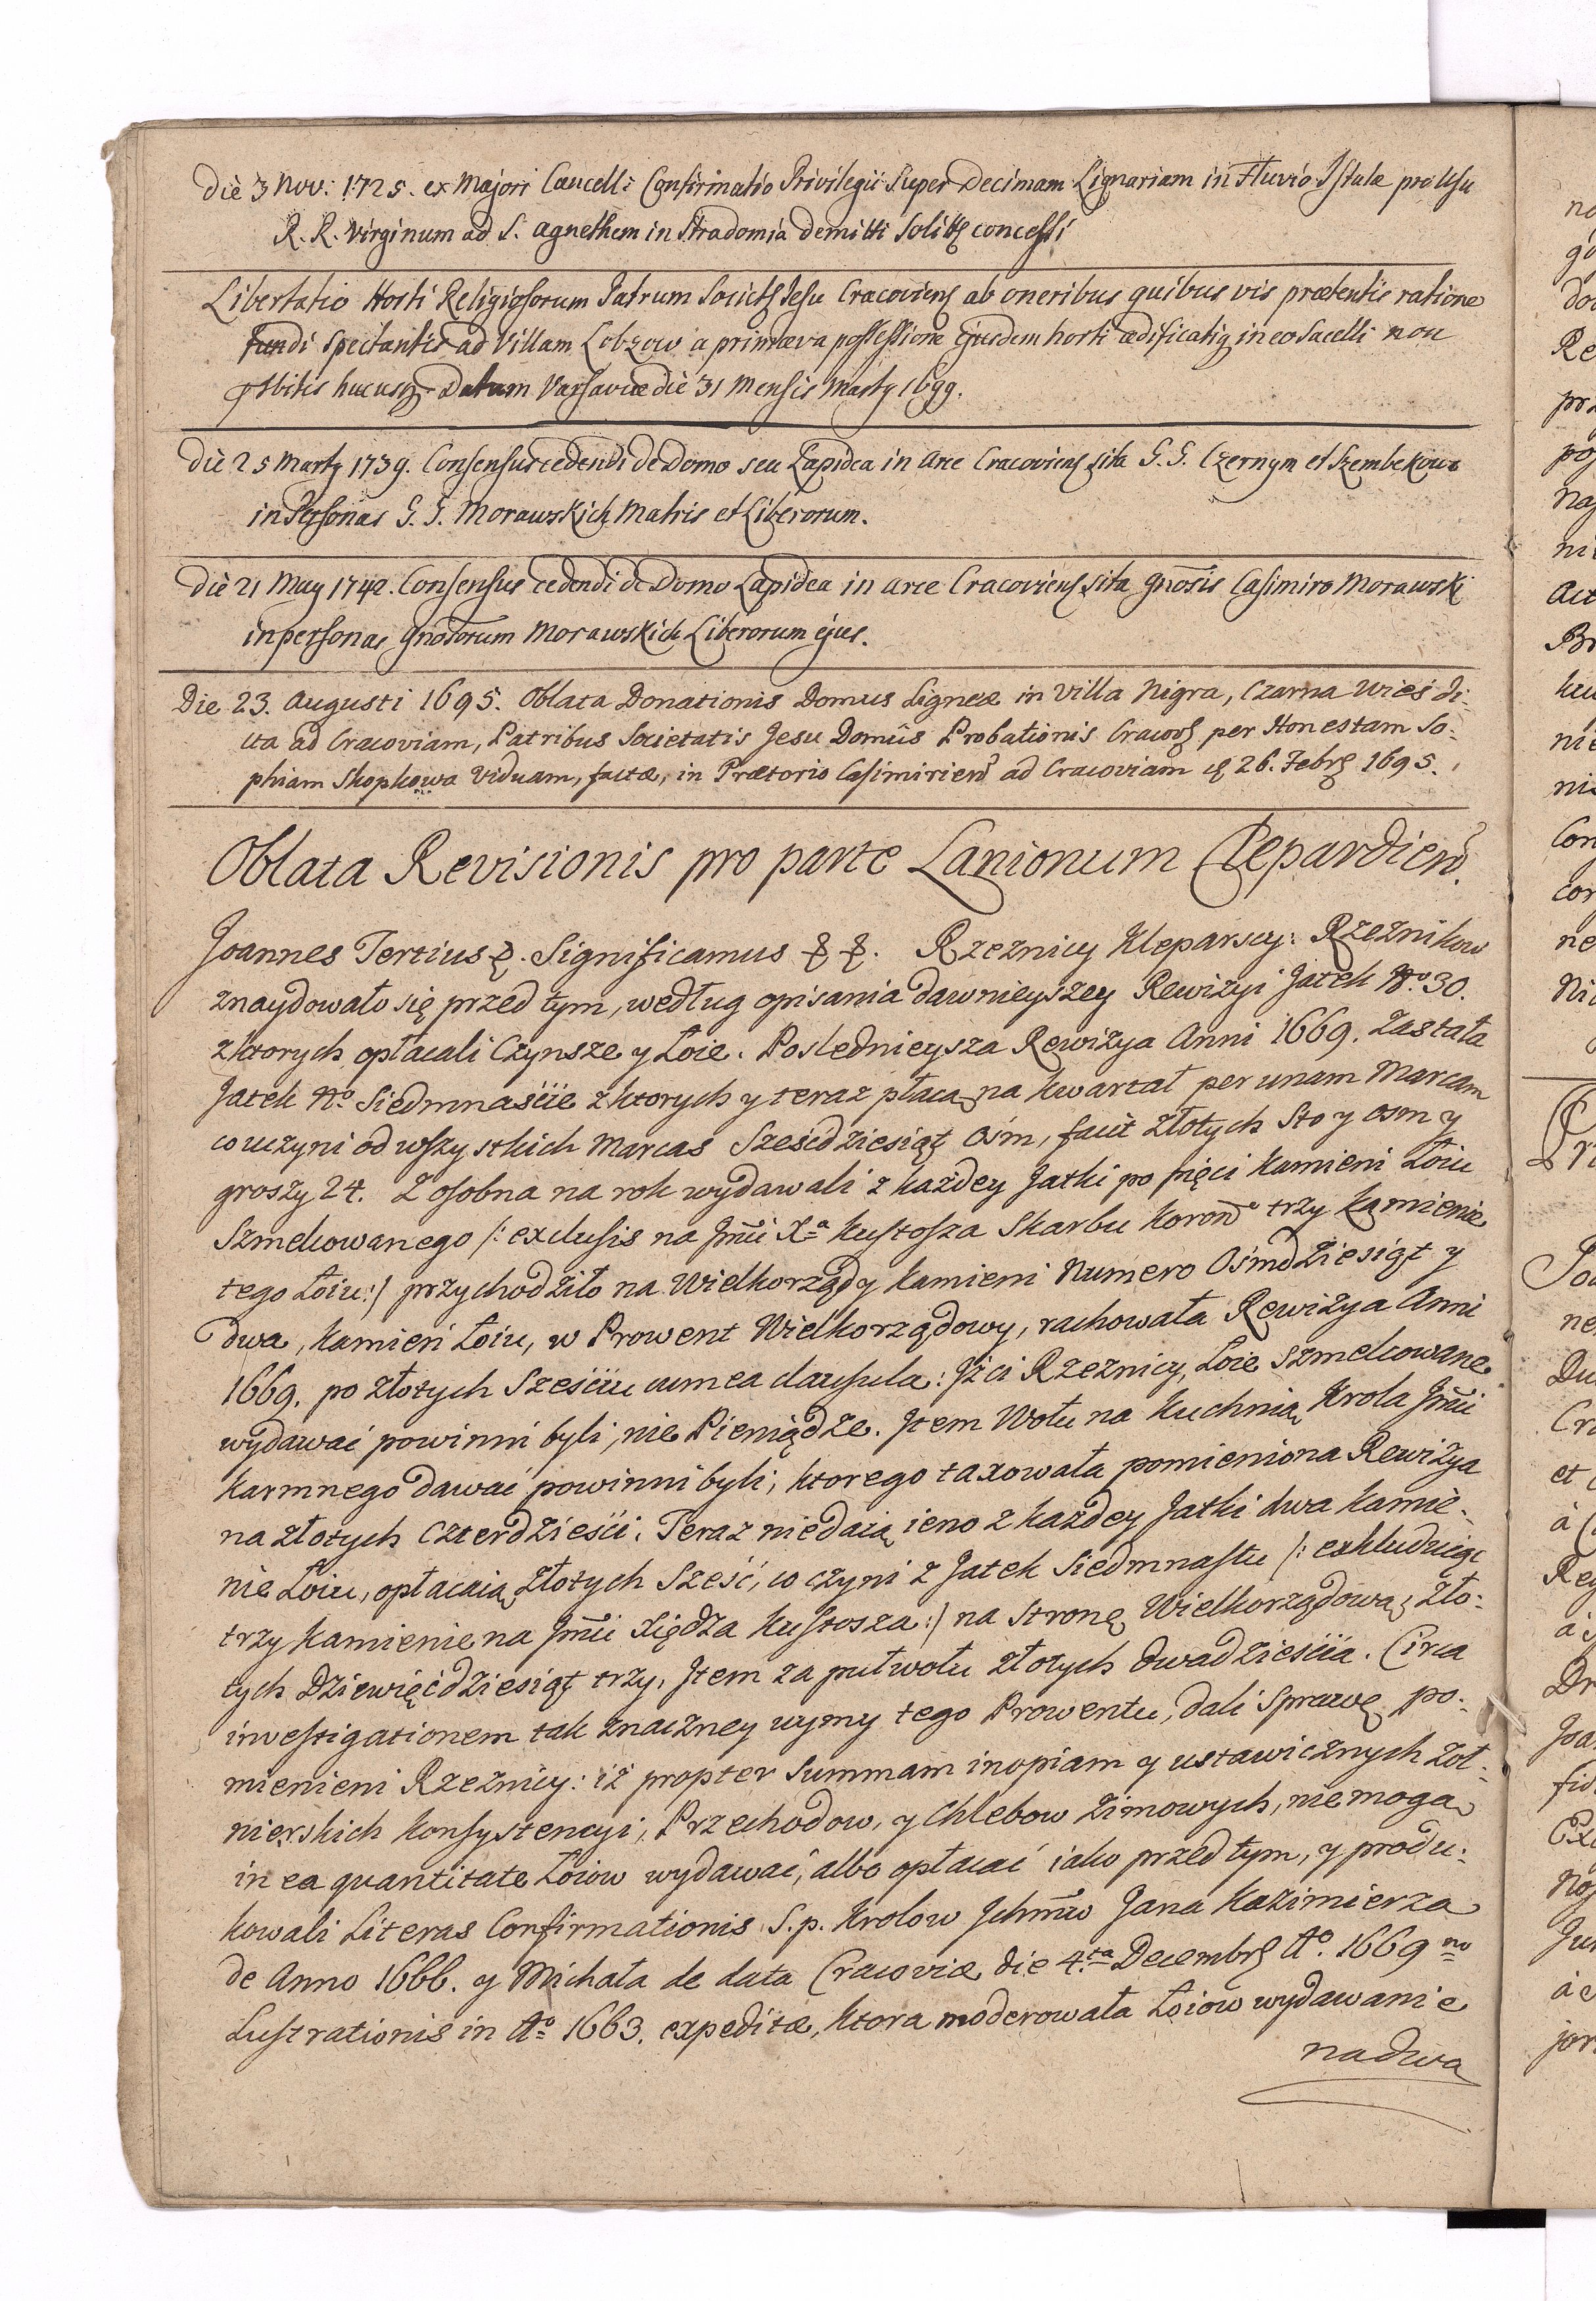 Die 3 Nov: 1725. ex Majori Cancell: Confirmatio Privilegii super Decimam Lignariam in Fluvio Istula pro Usu
R. R. Virginum ad S. Agnethem in Stradomia demitti concessi
Libertatio Horti Religiosorum Patrum Jesu ab oneribus quibus vis prætensis ratione
fundi spectantis ad Villam Lobzow a primæva possessione ejusdem horti in eo Sacelli non
Datum Varsaviæ die 31 Mensis Marty 1699.
Die 25 Marty 1739. Consensus cedendi de Domo seu Lapidea in Arce sita G. G. Czernym et Szembekow
in Personas G. G. Morawskich Matris et Liberorum.
Die 21 May 1742. Consensus cedendi de Domo Lapidea in Arce sita Gnosis Casimiro Morawski
in personas Gnosorum Morawskich Liberorum ejus.
Die 23. Augusti 1695. Oblata Donationis Domus Ligneæ in Villa Nigra, Czarna Wieś di:
cta ad Cracoviam, Patribus Societatis Jesu Domûs Probationis per Honestam So:
phiam Skopkowa Viduam, factæ, in Prætorio ad Cracoviam 26. 1695.
Oblata Revisionis pro parte Lanionum
Joannes Tertius &. Significamus & &. Rzeznicy Kleparscy: Rzeźnikow
znaydowało się przed tym, według opisania dawnieyszey Rewizyi Jatek No. 30.
z ktorych opłacali Czynsze y Łoie. Poslednieysza Rewizya Anni 1669. Zastała
Jatek No. Siedmnaście z ktorych y teraz płacą na kwartał per unam Marcam
co uczyni od wszystkich Marcas Sześcdziesiąt Ośm, facit złotych Sto y osm y
groszy 24. Z osobna na rok wydawali z każdey Jatki po pięci Kamieni Łoiu
Szmelcowanego /: exclusis na Jmći Xa Kustosza Skarbu Koron trzy Kamienie
tego Łoiu :/ przychodziło na Wielkorządy Kamieni Numero Ośmdziesiąt y
dwa, Kamień Łoiu, w Prowent Wielkorządowy, rachowała Rewizya Anni
1669. po złotych Sześciu cum ea clausula: Iż ci Rzeznicy, Łoie szmelcowane
wydawać powinni byli, nie Pieniądze. Item Wołu na Kuchnią Krola Jmći
Karmnego dawać powinni byli, ktorego taxowała pomieniona Rewizya
na złotych Czterdzieści. Teraz nie daią ieno z każdey Jatki dwa Kamie:
nie Łoiu, opłacaią złotych Sześć, co czyni z Jatek Siedmnastu /: exkludując
trzy Kamienie na Jmći Xiędza Kustosza :/ na stronę Wielkorządową, zło:
tych Dziewięćdziesiąt trzy, Item za puł wołu złotych dwadzieścia. Circa
investigationem tak znaczney uymy tego Prowentu, dali Sprawę po:
mienieni Rzeznicy: iż propter Summam inopiam y ustawicznych Żoł:
nierskich Konsystencyi, Przechodow, y Chlebow Zimowych, nie mogą
in ea quantitate Łoiow wydawać, albo opłacać iako przed tym, y produ:
kowali Literas Confirmationis S.p. Krolow Ichmćiw Jana Kazimierza
de Anno 1666. y Michała de data Cracoviæ die 4.ta Ao. 1669 no
Lustrationis in Ao 1663. expeditæ, ktora moderowała Łoiow wydawanie
na dwa